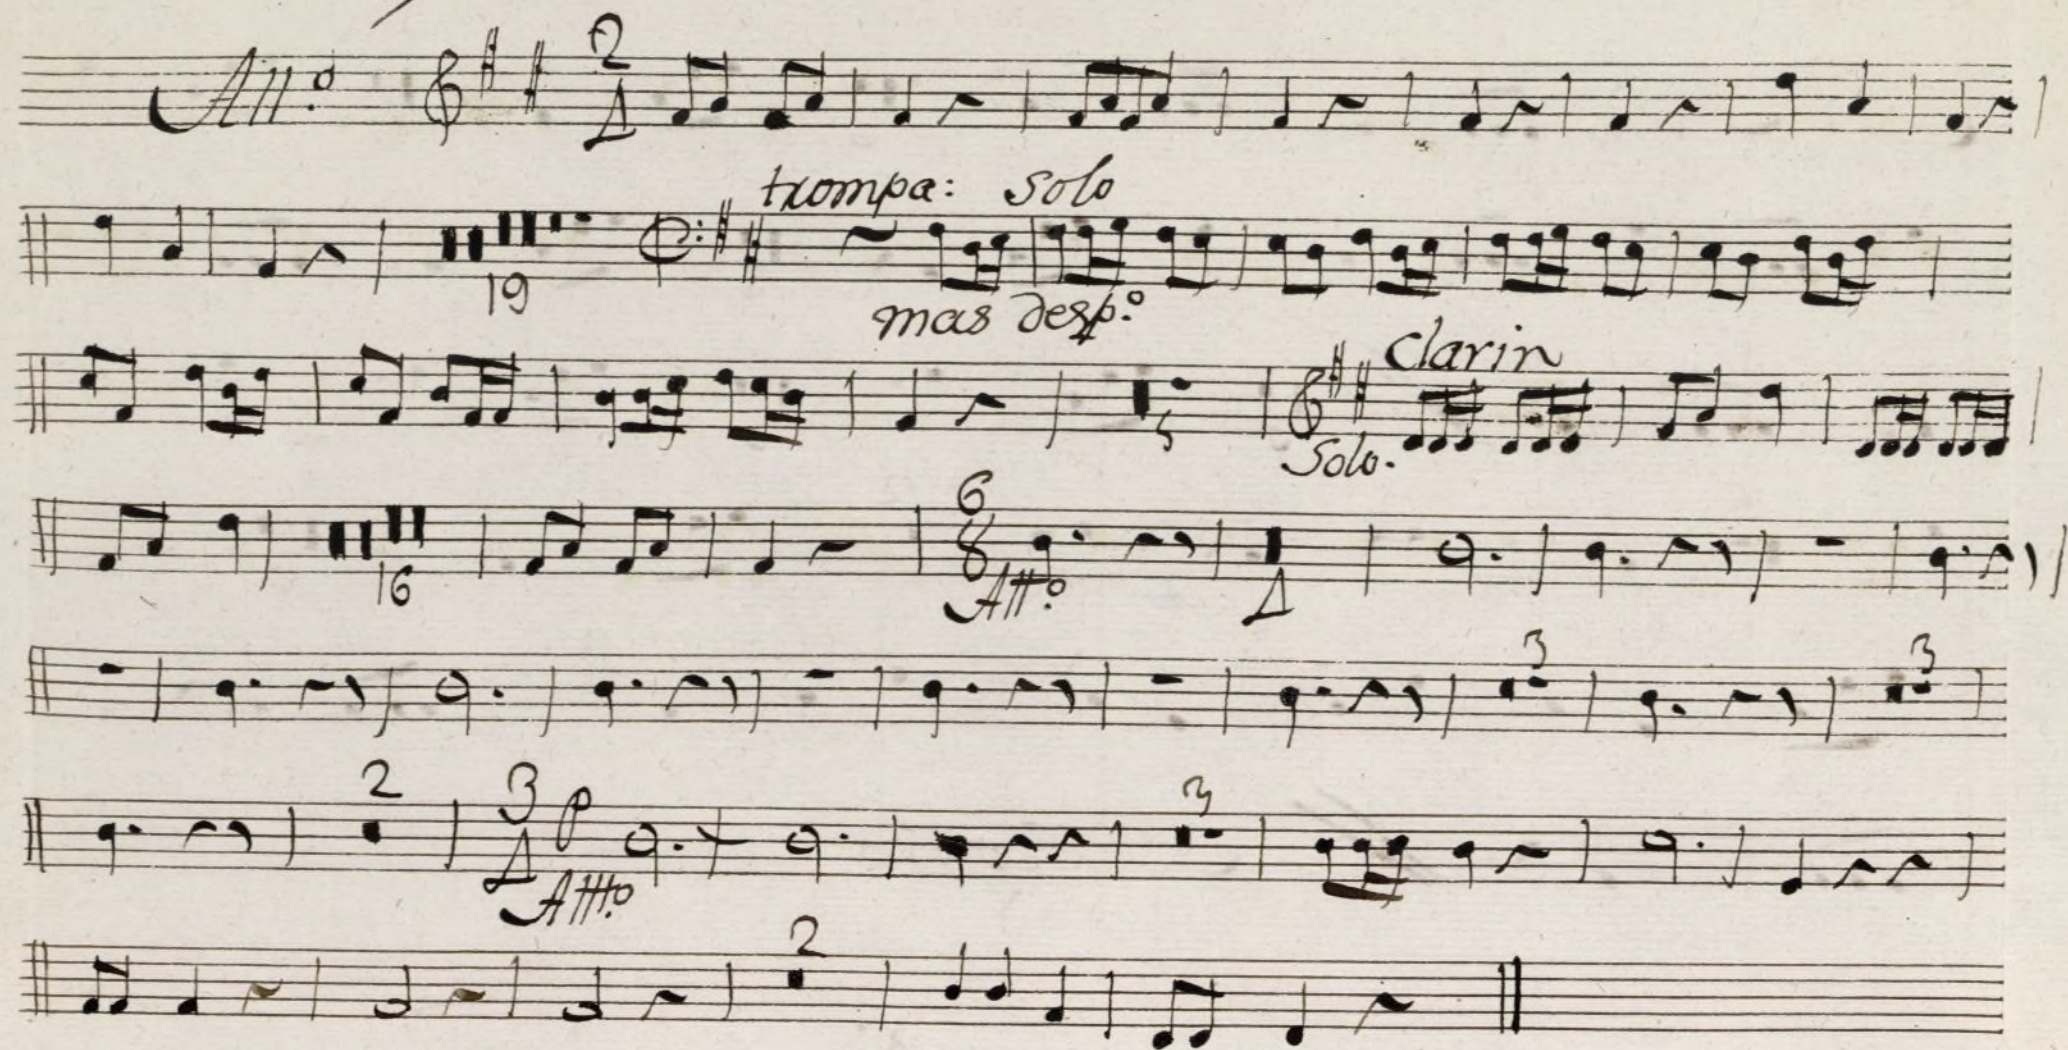 All.o 2 4
trompa: solo
19
mas desp.o
Clarin
Solo.
6 8
16 All.o 4
3 3
2 3 4 p 3
All.o
2